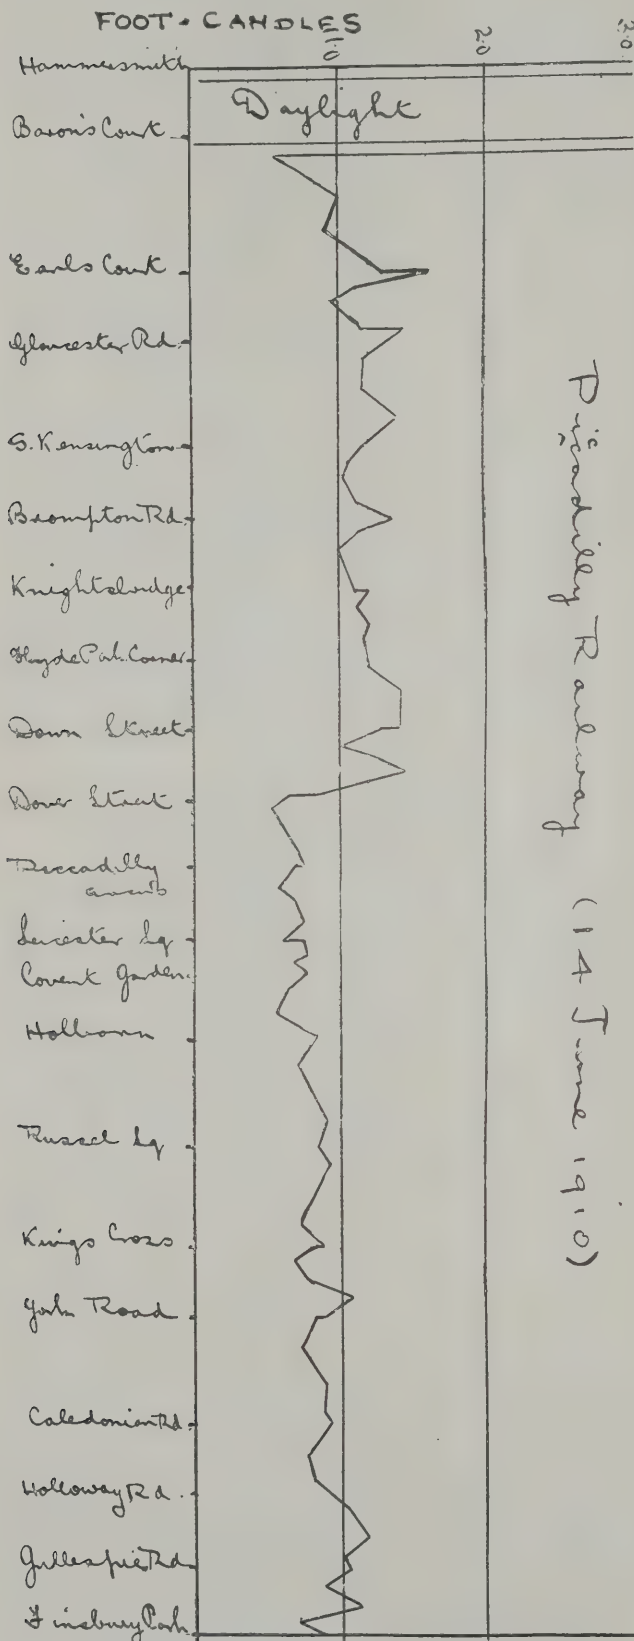 FOOT-CANDLES
1.0 2.0 3.0
Hammersmith
Daylight
Baron's Court
Earls Court
Gloucester Rd.
S. Kensington
Brompton Rd.
Knightsbridge
Hyde Park Corner
Down Street
Dover Street
Piccadilly
Circus
Leicester Sq
Covent Garden
Holborn
Russel Sq
Kings Cross
York Road
Caledonian Rd.
Holloway Rd.
Gillespie Rd.
Finsbury Park
Piccadilly Railway (14 June 1910)